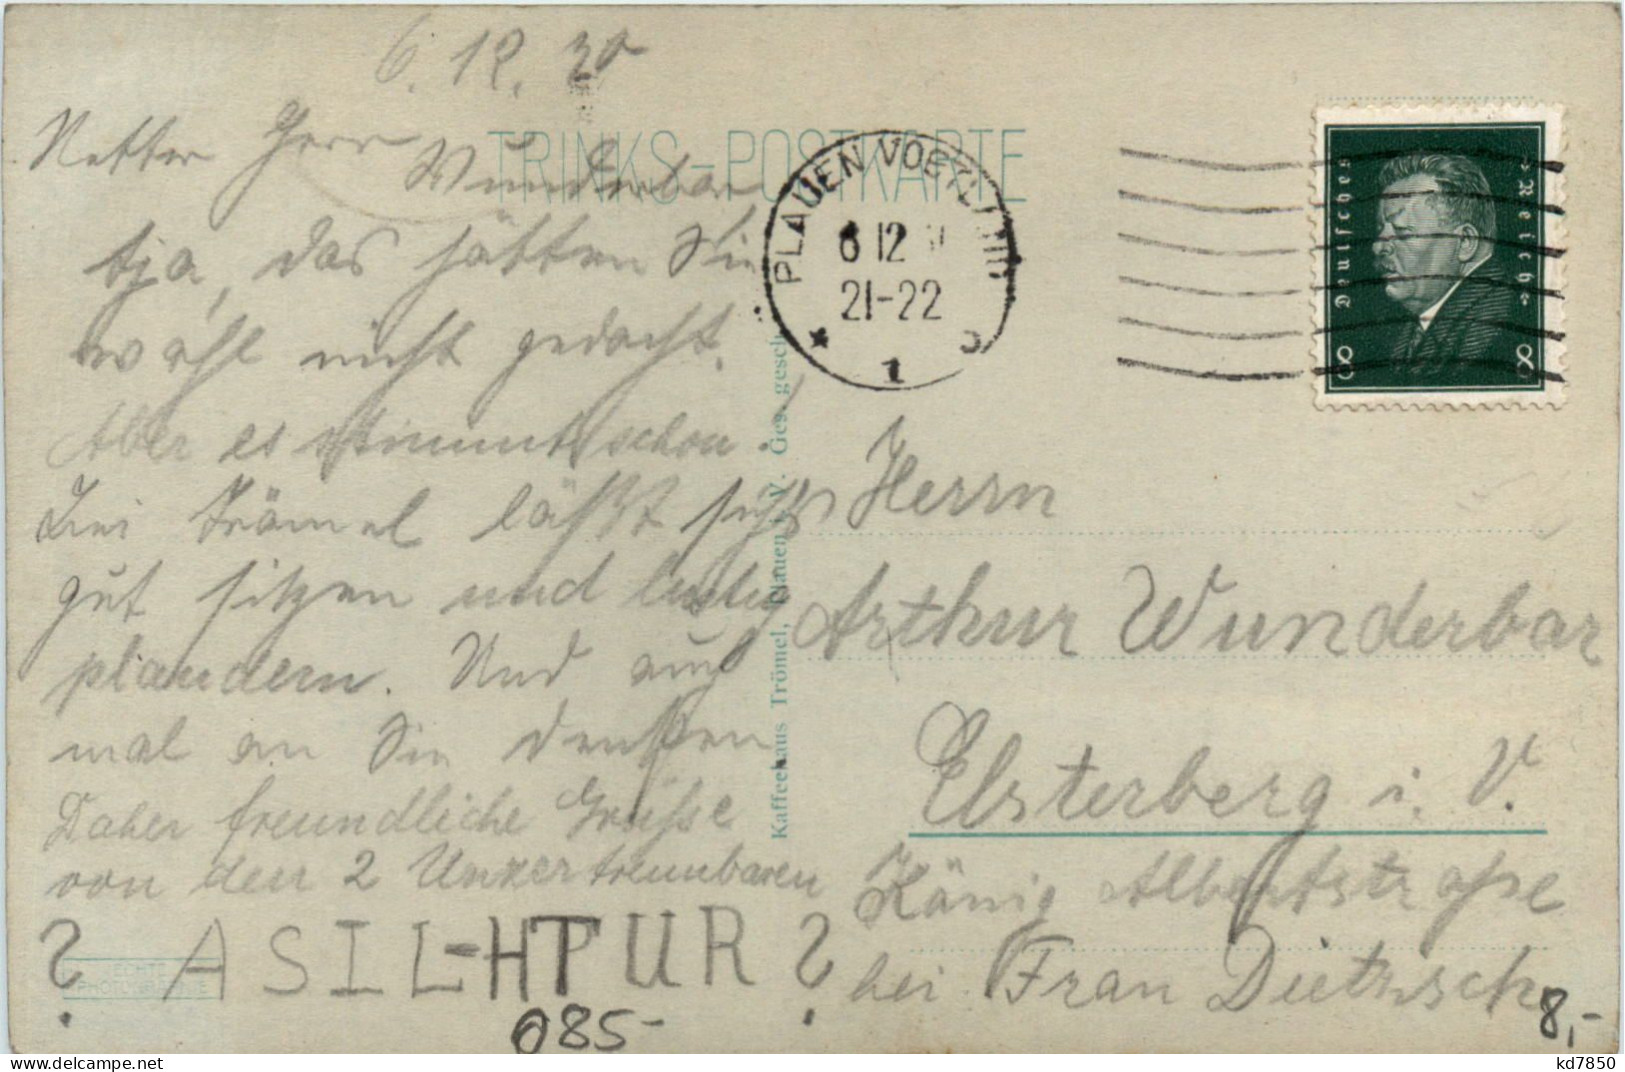 6. 12. 30
Netter Herr
Wunderbar
TRINKS-POSTKARTE
tja, das hätten Sie
wohl nicht gedacht.
Aber es stimmt schon.
Bei Trömel läßt sichs
gut sitzen und lustig
plaudern. Und auch
mal an Sie denken
Daher freundliche Grüsse
von den 2 Unzertrennbaren
? ASIL-HTUR ?
ECHTE
PHOTOGRAPHIE
Kaffeehaus Trömel, Plauen i. V. Ges. gesch.
PLAUEN VOGTL
6 12
21-22
* 1
Deutsches Reich
8 8
Herrn
Arthur Wunderbar
Elsterberg i. V.
König Albertstrasse
bei Frau Dietzsch
085-
8,-
kd7850